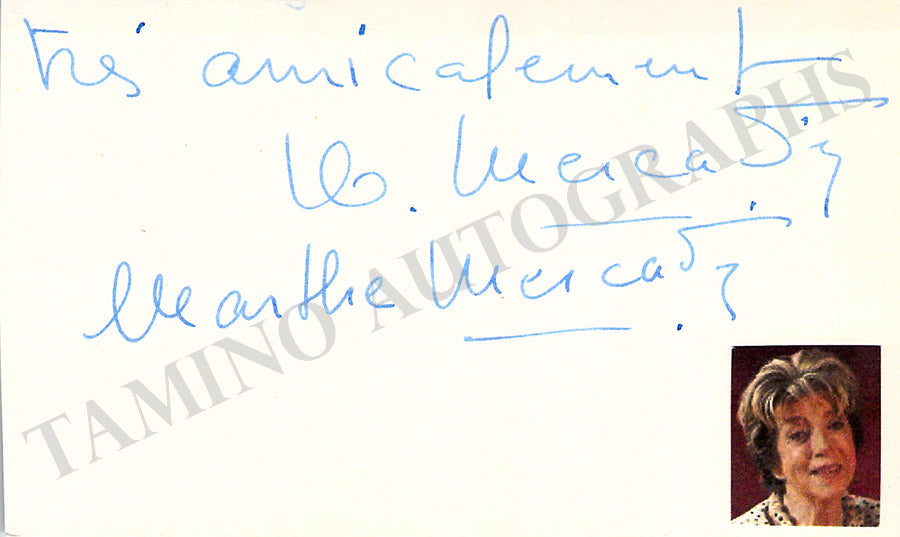 très amicalement
M. Mercadier
Marthe Mercadier
TAMINO AUTOGRAPHS